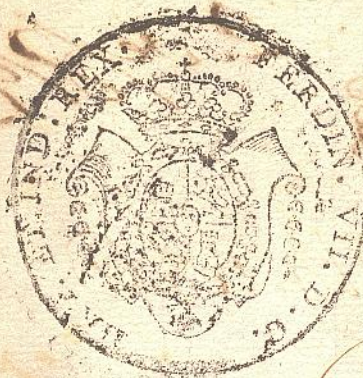 FERDIN. VII. D. G.
ET IND. REX.